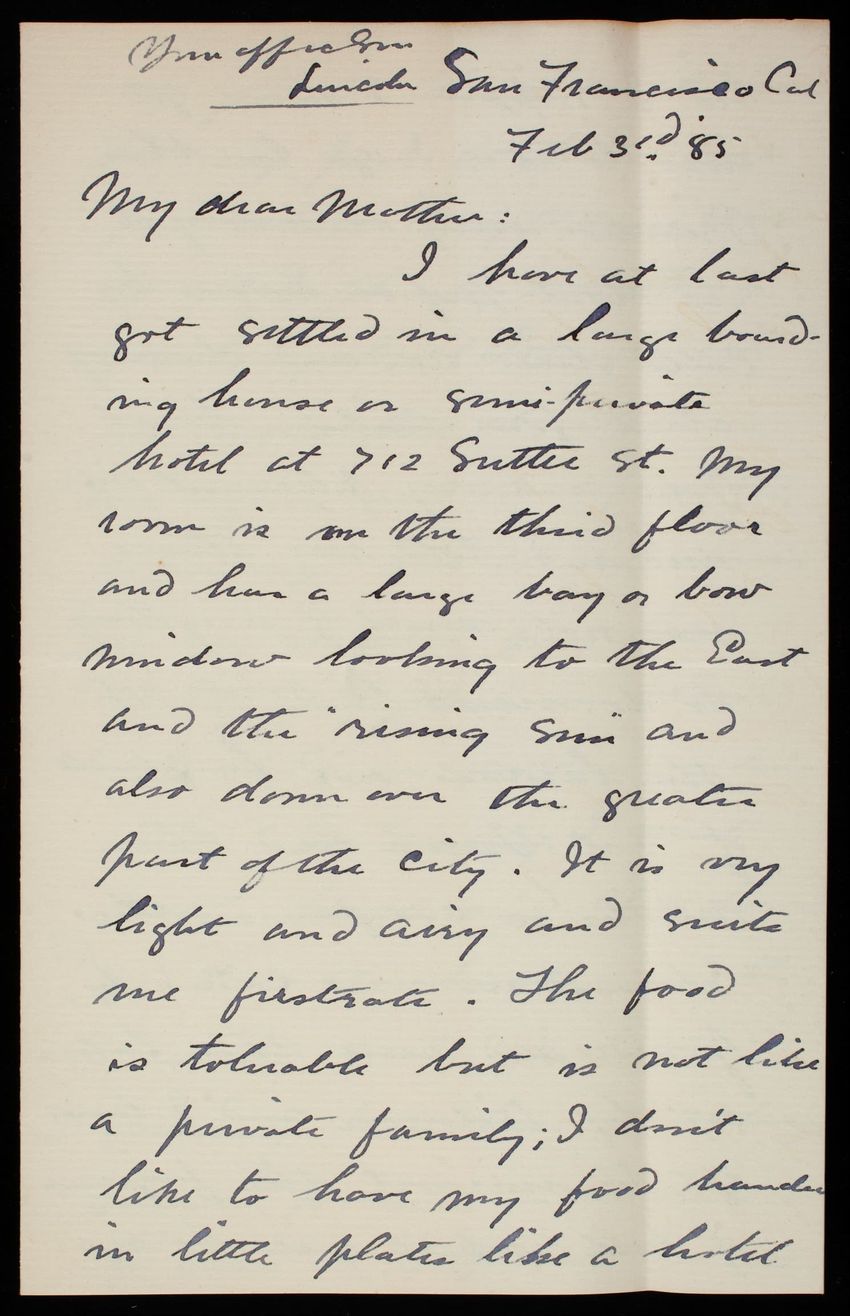 Your affec Son
Lincoln San Francisco Cal
Feb 3rd '85
My dear Mother:
I have at last
got settled in a large board-
ing house or semi-private
hotel at 712 Sutter St. My
room is on the third floor
and has a large bay or bow
window looking to the East
and the "rising sun" and
also down over the greater
part of the city. It is very
light and airy and suits
me firstrate. The food
is tolerable but is not like
a private family; I don't
like to have my food handed
in little plates like a hotel